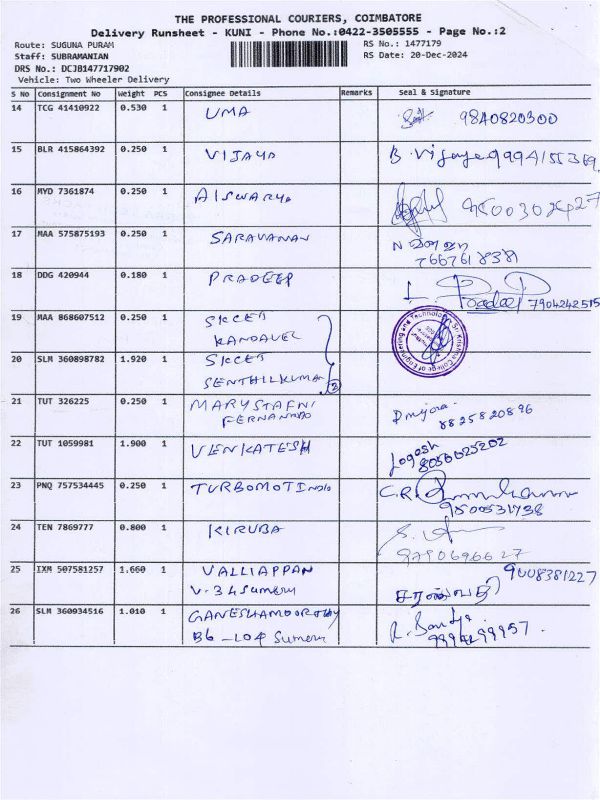 THE PROFESSIONAL COURIERS, COIMBATORE
Delivery Runsheet - KUNI - Phone No.:0422-3505555 - Page No.:2
Route: SUGUNA PURAM RS No.: 1477179
Staff: SUBRAMANIAN RS Date: 20-Dec-2024
DRS No.: DCJB147717902
Vehicle: Two Wheeler Delivery
S No Consignment No Weight PCS Consignee Details Remarks Seal & Signature
14 TCG 41410922 0.530 1 UMA 9840820300
15 BLR 415864392 0.250 1 VIJAYA B. Vijaya 9994155369.
16 MYD 7361874 0.250 1 AISWARYA
17 MAA 575875193 0.250 1 SARAVANAN
766761838
18 DDG 420944 0.180 1 PRADEEP 7904242515
19 MAA 868607512 0.250 1 SKCET
KANDAVEL
Sri Krishna College of Engineering and Technology
20 SLM 360898782 1.920 1 SKCET
SENTHILKUMAR 2
21 TUT 326225 0.250 1 MARYSTAFNI
FERNANADO
8825820896
22 TUT 1059981 1.900 1 VENKATESH Logesh
8056625202
23 PNQ 757534445 0.250 1 TURBOMOT INDIA C.R.
9500531738
24 TEN 7869777 0.800 1 KIRUBA
9790696627
25 IXM 507581257 1.660 1 VALLIAPPAN 9008381227
V. 34 Sumeru சரஸ்வதி
26 SLM 360934516 1.010 1 GANESHAMOORTHY
B6 - 104 Sumeru